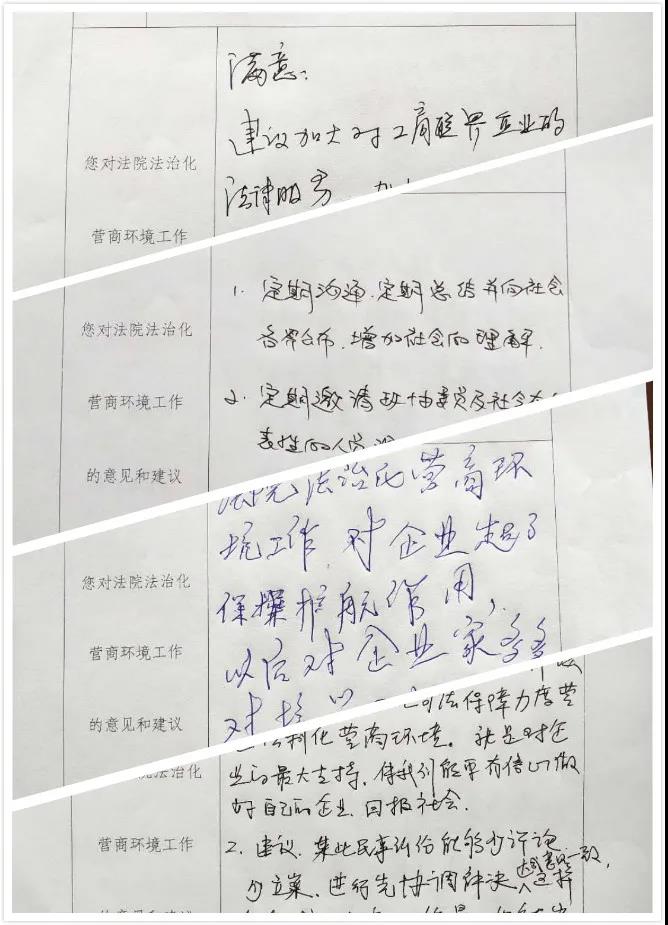 满意：
建议加大对工商联界企业的
您对法院法治化
法律服务
营商环境工作
1. 定期沟通、定期总结并向社会
您对法院法治化
各界公布，增加社会的理解.
营商环境工作
2. 定期邀请政协委员及社会
表性的人员
的意见和建议
法院法治化营商环
境工作，对企业起了
您对法院法治化
保摞护航作用，
营商环境工作
以后对企业家多多
的意见和建议
司法保障力度营
法制化营商环境。就是对企
院法治化
业的最大支持，使我们能更有信心做
好自己的企业，回报社会.
营商环境工作
2. 建议，某些民事纠纷能够
少立案，进行先协调解决
达成意见一致，
的意见和建议